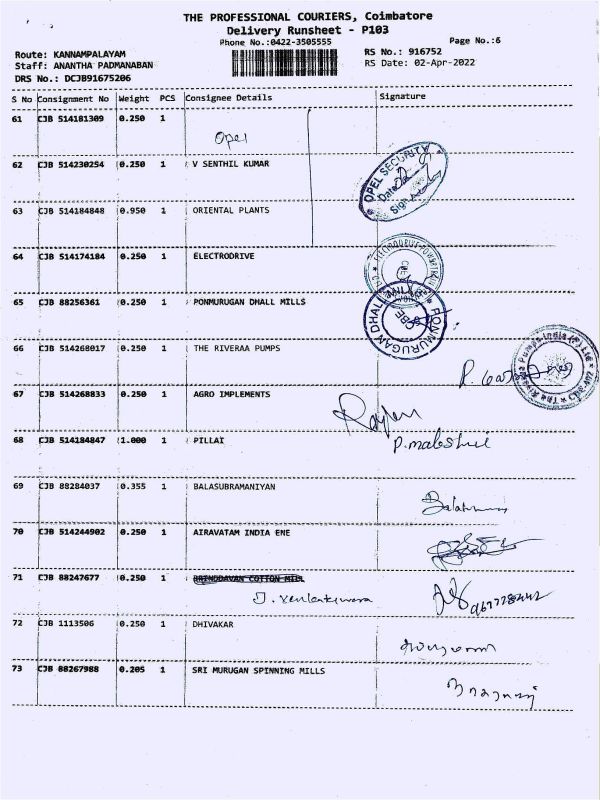 THE PROFESSIONAL COURIERS, Coimbatore
Delivery Runsheet - P103
Phone No.:0422-3505555
Page No.:6
Route: KANNAMPALAYAM
RS No.: 916752
Staff: ANANTHA PADMANABAN
RS Date: 02-Apr-2022
DRS No.: DCJB91675206
S No Consignment No Weight PCS Consignee Details Signature
61 CJB 514181309 0.250 1
Opel
62 CJB 514230254 0.250 1 V SENTHIL KUMAR
OPEL SECURITY
Date
Sign
63 CJB 514184848 0.950 1 ORIENTAL PLANTS
64 CJB 514174184 0.250 1 ELECTRODRIVE
65 CJB 88256361 0.250 1 PONMURUGAN DHALL MILLS
PONMURUGAN DHALL MILL
CBE
66 CJB 514268017 0.250 1 THE RIVERAA PUMPS
67 CJB 514268833 0.250 1 AGRO IMPLEMENTS
68 CJB 514184847 1.000 1 PILLAI
69 CJB 88284037 0.355 1 BALASUBRAMANIYAN
70 CJB 514244902 0.250 1 AIRAVATAM INDIA ENE
71 CJB 88247677 0.250 1 BRINDDAVAN COTTON MILL
72 CJB 1113506 0.250 1 DHIVAKAR
73 CJB 88267988 0.205 1 SRI MURUGAN SPINNING MILLS